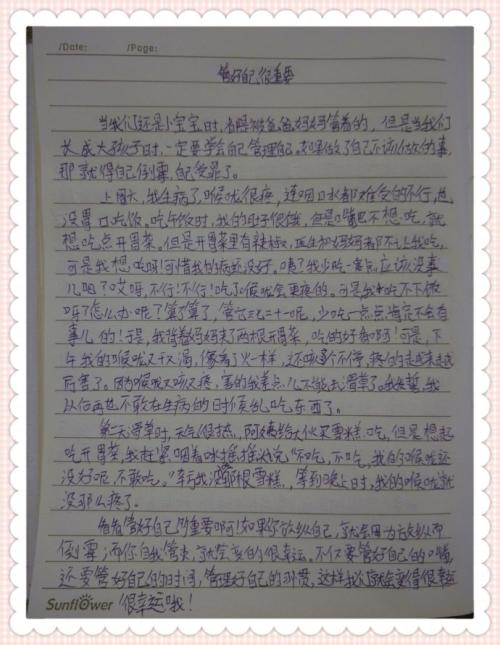 /Date: /Page:
管好自己很重要
当我们还是小宝宝时,都是被爸爸妈妈管着的,但是当我们
长成大孩子时,一定要学会自己管理自己。如果做了自己不该做的事,
那就得自己倒霉,自己受罪了。
上周六,我生病了,喉咙很疼,连咽口水都难受的不行,也
没胃口吃饭。吃午饭时,我的肚子很饿,但是嘴巴不想吃,就
想吃点开胃菜。但是开胃菜里有辣椒,医生和妈妈都不让我吃,
可是我想吃呀!可惜我的病还没好。咦?我少吃一点点,应该没事
儿吧?哎呀,不行!不行!吃了喉咙会更疼的。可是我吃不下饭
呀?怎么办呢?算了算了,管它三七二十一呢,少吃一点点
事儿的!于是,我背着妈妈夹了两根开胃菜,吃的好香啊!可是,下
午我的喉咙又干又渴,像着了火一样,还咳嗽个不停,疼的越来越
厉害了。因为喉咙又咳又疼,害的我差点儿不能去滑草了。我发誓,我
从后再也不敢在生病的时候乱吃东西了。
第二天滑草时,天气很热,阿姨给大伙买雪糕吃,但是想起
吃开胃菜,我赶紧咽着口水摇摇头说“不吃,不吃,我的喉咙还
没好呢,不敢吃。”幸亏我没吃那根雪糕,等到晚上时,我的喉咙就
没那么疼了。
管好自己多重要啊!如果你放纵自己,就会因为放纵而
倒霉;而你自我管束,就会变的很幸运。不仅要管好自己的嘴,
还要管好自己的时间,管理好自己的习惯,这样我们就会变得很幸运
很幸运哦!
Sunflower